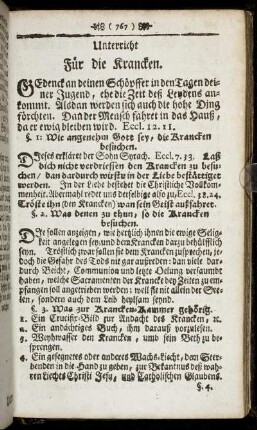 ( 767 )
Unterricht
Für die Krancken.
GEdenck an deinen Schöpffer in den Tagen dei-
ner Jugend, ehe die Zeit deß Leydens an-
kommt. Alsdan werden sich auch die hohe Ding
förchten. Dan der Mensch fahret in das Hauß,
da er ewig bleiben wird. Eccl. 12. 11.
§. 1: Wie angenehm Gott sey, die Krancken
besuchen.
DIeses erkläret der Sohn Syrach. Eccl. 7. 33. Laß
dich nicht verdriessen den Krancken zu besu-
chen / dan dardurch wirstu in der Liebe bestättiget
werden. In der Liebe bestehet die Christliche Vollkom-
menheit. Abermahl redet und derselbige also zu, Eccl. 38. 24.
Tröste ihn (den Krancken) wan sein Geist auffahret.
§. 2. Was denen zu thun, so die Krancken
besuchen.
DIe sollen anzeigen, wie hertzlich ihnen die ewige Selig-
keit angelegen sey, und dem Krancken darzu behülfflich
seyn. Tröstlich zwar sollen sie dem Krancken zusprechen, je-
doch die Gefahr des Tods nit gar außreden: dan viele dar-
durch Beicht, Communion und letzte Oelung versaumbt
haben, welche Sacramenten der Krancke bey Zeiten zu em-
pfangen soll angetrieben werden: weil sie nit allein der See-
len, sondern auch dem Leib heylsam seynd.
§. 3. Was zur Krancken-Kammer gehörig.
1. Ein Crucifix-Bild zur Andacht des Krancken, ꝛc.
2. Ein andächtiges Buch, ihm darauß vorzulesen.
3. Weyhwasser den Krancken, und sein Beth zu be-
sprengen.
4. Ein gesegnetes oder anderes Wachs-Liecht, dem Ster-
benden in die Hand zu geben, zur Bekantnus deß wah-
ren Liechts Christi Jesu, und Catholischen Glaubens.
§. 4.